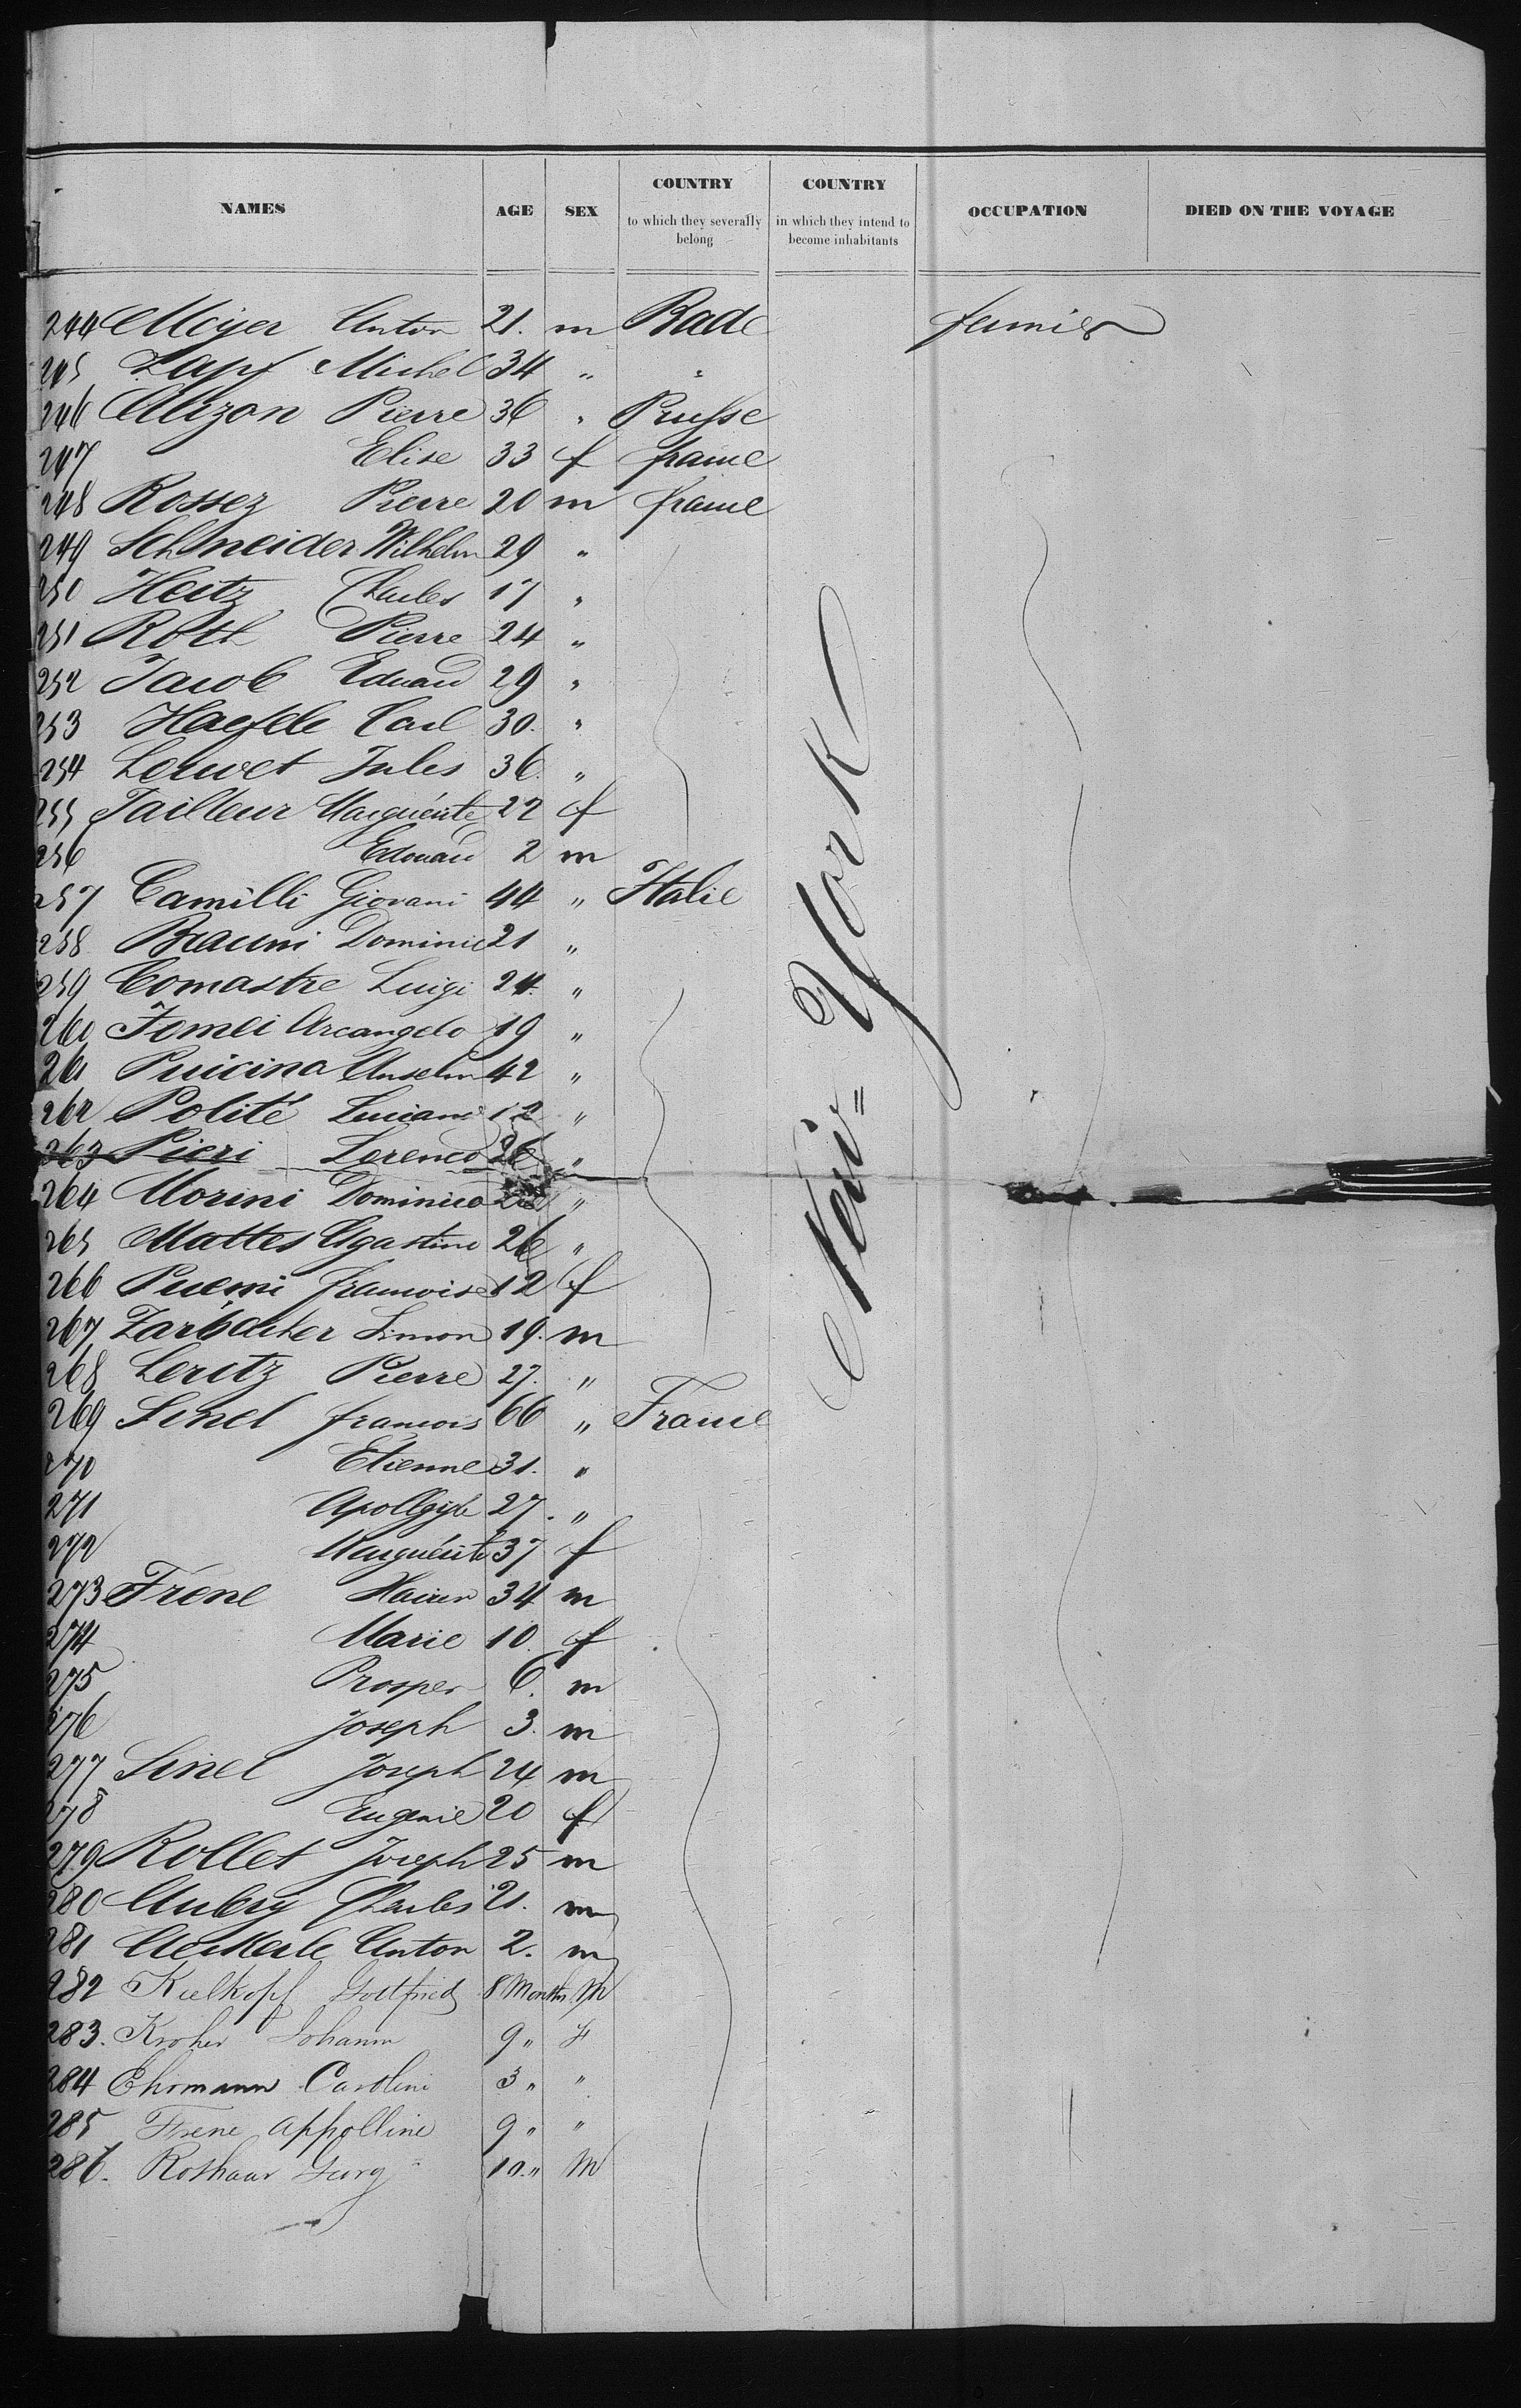 NAMES AGE SEX COUNTRY to which they severally belong COUNTRY in which they intend to become inhabitants OCCUPATION DIED ON THE VOYAGE
244 Meyer Anton 21. m Bade fermier
245 Zapf Michel 34 " "
246 Alizon Pierre 36 " Prusse
247 Elise 33 f france
248 Rossez Pierre 20 m france
249 Schneider Wilhelm 29 "
250 Heitz Charles 17 "
251 Roth Pierre 24 "
252 Jacob Eduard 29 "
253 Haefele Carl 30. "
254 Louvet Jules 36. "
255 Tailleur Marguérite 22 f
256 Edouard 2 m
257 Camilli Giovani 44 " Italie
258 Brauni Dominic 21 "
259 Comastre Luigi 24. "
260 Tomei Arcangelo 19 "
261 Puicina Anselm 42 "
262 Polité Luciano 12 "
263 Pieri Lorenco 26 "
264 Morini Dominico "
265 Mattes Agastino 26 "
266 Puemi francoise 12 f
267 Zarbacher Simon 19. m
268 Leritz Pierre 27. "
269 Sinel francois 66 " France
270 Etienne 31. "
271 27. "
272 Marguérite 37 f
273 Frene 34 m
274 Marie 10. f
275 Prosper 6. m
276 Joseph 3. m
277 Sinel Joseph 24 m
278 Eugenie 20 f
279 Rollet Joseph 25 m
280 Aubry Charles 21. m
281 Aeckerle Anton 2. m
282 Kielkopf Gottfried 8 Months M
283. Kroher Johann 9 " F
284 Ehrmann Carolini 3 " "
285 Frene Appolline 9 " "
286. Roshaar Georg 10. " M
New=York